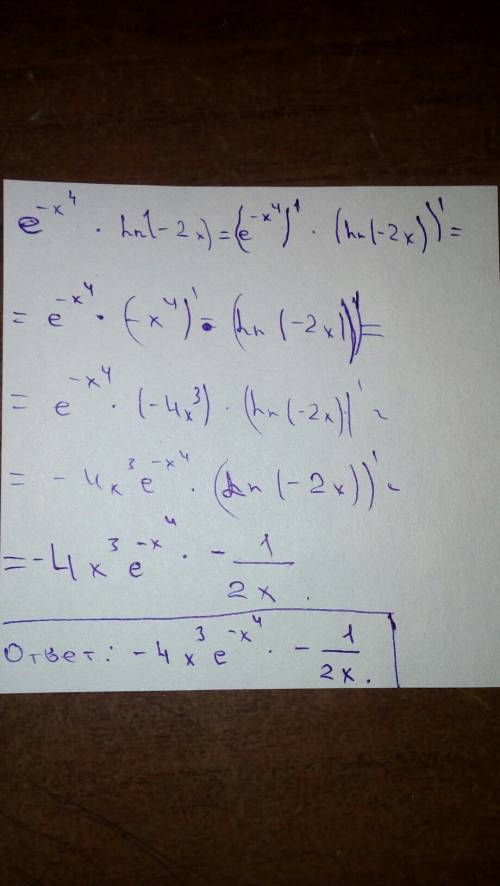 e^{-x^4} · ln(-2x) = (e^{-x^4})' · (ln(-2x))' =
= e^{-x^4} · (-x^4)' · (ln(-2x))' =
= e^{-x^4} · (-4x^3) · (ln(-2x))' =
= -4x^3 e^{-x^4} · (ln(-2x))' =
= -4x^3 e^{-x^4} · - \frac{1}{2x}.
Ответ: -4x^3 e^{-x^4} · - \frac{1}{2x}.